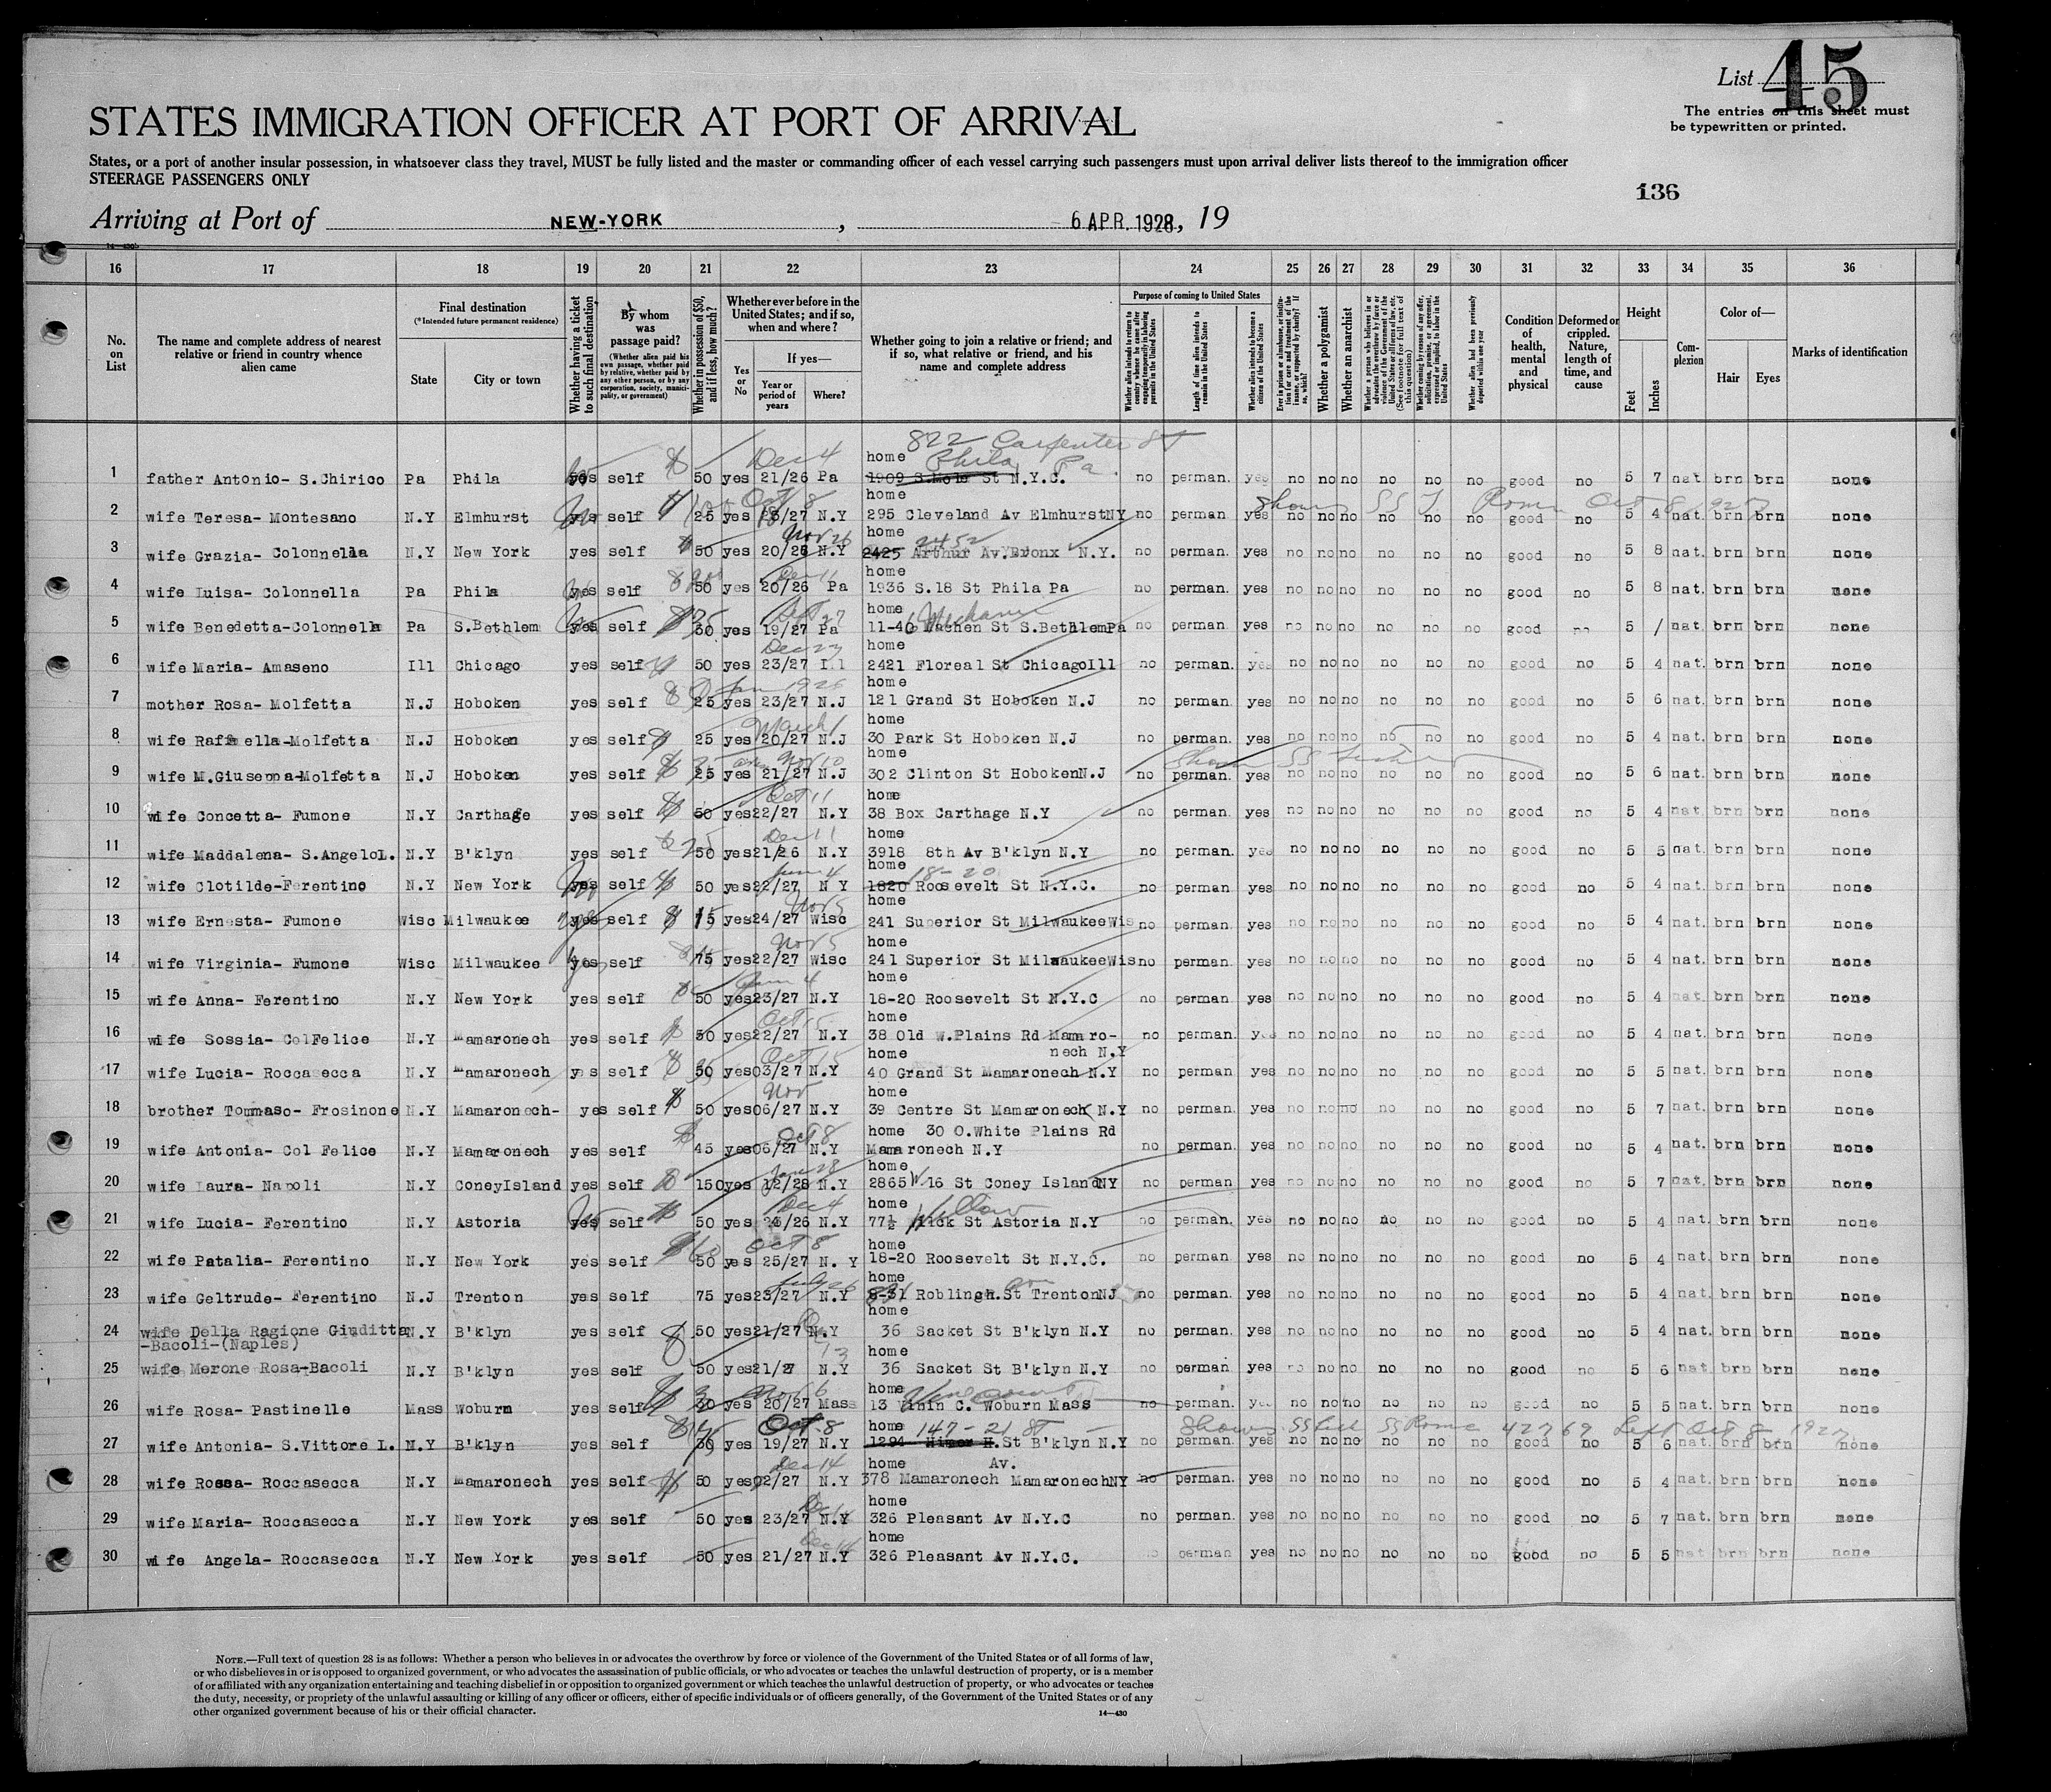 List 45
STATES IMMIGRATION OFFICER AT PORT OF ARRIVAL
The entries on this sheet must
be typewritten or printed.
States, or a port of another insular possession, in whatsoever class they travel, MUST be fully listed and the master or commanding officer of each vessel carrying such passengers must upon arrival deliver lists thereof to the immigration officer
STEERAGE PASSENGERS ONLY
136
Arriving at Port of NEW-YORK, 6 APR. 1928, 19
14—430
16 17 18 19 20 21 22 23 24 25 26 27 28 29 30 31 32 33 34 35 36
No. on List
The name and complete address of nearest relative or friend in country whence alien came
Final destination
(*Intended future permanent residence)
State
City or town
Whether having a ticket to such final destination
By whom was passage paid?
(Whether alien paid his own passage, whether paid by relative, whether paid by any other person, or by any corporation, society, municipality, or government)
Whether in possession of $50, and if less, how much?
Whether ever before in the United States; and if so, when and where?
Yes or No
If yes—
Year or period of years
Where?
Whether going to join a relative or friend; and if so, what relative or friend, and his name and complete address
Purpose of coming to United States
Whether alien intends to return to country whence he came after engaging temporarily in laboring pursuits in the United States
Length of time alien intends to remain in the United States
Whether alien intends to become a citizen of the United States
Ever in prison or almshouse, or institution for care and treatment of the insane, or supported by charity? If so, which?
Whether a polygamist
Whether an anarchist
Whether a person who believes in or advocates the overthrow by force or violence of the Government of the United States or all forms of law, etc. (See footnote for full text of this question)
Whether coming by reason of any offer, solicitation, promise, or agreement, expressed or implied, to labor in the United States
Whether alien had been previously deported within one year
Condition of health, mental and physical
Deformed or crippled. Nature, length of time, and cause
Height
Feet
Inches
Complexion
Color of—
Hair
Eyes
Marks of identification
822 Carpenter St
Dec 4 home Phila Pa.
1 father Antonio- S.Chirico Pa Phila yes self 50 yes 21/26 Pa 1909 S.Mole St N.Y.C. no perman. yes no no no no no no good no 5 7 nat. brn brn none
Oct 8 home
2 wife Teresa- Montesano N.Y Elmhurst yes self 25 yes 23/27 N.Y 295 Cleveland Av ElmhurstNY no perman yes no no no no no no good no 5 4 nat. brn brn none
Nov 26 home 2452
3 wife Grazia- Colonnella N.Y New York yes self 50 yes 20/26 N.Y 2425 Arthur Av.Bronx N.Y. no perman. yes no no no no no no good no 5 8 nat. brn brn none
Dec 11 home
4 wife Luisa- Colonnella Pa Phila yes self 50 yes 20/26 Pa 1936 S.18 St Phila Pa no perman. yes no no no no no no good no 5 8 nat. brn brn none
home Mechanic
5 wife Benedetta-Colonnella Pa S.Bethlem yes self 30 yes 19/27 Pa 11-46 Machen St S.BethlemPa no perman. yes no no no no no no good no 5 / nat. brn brn none
Dec 23 home
6 wife Maria- Amaseno Ill Chicago yes self 50 yes 23/27 Ill 2421 Floreal St ChicagoIll no perman. yes no no no no no no good no 5 4 nat. brn brn none
Jan 1926 home
7 mother Rosa- Molfetta N.J Hoboken yes self 25 yes 23/27 N.J 121 Grand St Hoboken N.J no perman. yes no no no no no no good no 5 6 nat. brn brn none
March 1 home
8 wife Raffaella-Molfetta N.J Hoboken yes self 25 yes 20/27 N.J 30 Park St Hoboken N.J no perman. yes no no no no no no good no 5 4 nat. brn brn none
Nov 10 home
9 wife M.Giuseppa-Molfetta N.J Hoboken yes self 25 yes 21/27 N.J 302 Clinton St HobokenN.J no perman. yes no no no no no no good no 5 6 nat. brn brn none
Oct 11 home
10 wife Concetta- Fumone N.Y Carthage yes self 50 yes22/27 N.Y 38 Box Carthage N.Y no perman. yes no no no no no no good no 5 4 nat. brn brn none
Dec 11 home
11 wife Maddalena- S.AngeloL. N.Y B'klyn yes self 50 yes21/26 N.Y 3918 8th Av B'klyn N.Y no perman. yes no no no no no no good no 5 5 nat. brn brn none
home 18-20
12 wife Clotilde-Ferentino N.Y New York yes self 50 yes22/27 N Y 1820 Roosevelt St N.Y.C. no perman yes no no no no no no good no 5 4 nat. brn brn none
Nov 5 home
13 wife Ernesta- Fumone Wisc Milwaukee yes self 15 yes24/27 Wisc 241 Superior St MilwaukeeWis no perman. yes no no no no no no good no 5 4 nat. brn brn none
Nov 5 home
14 wife Virginia- Fumone Wisc Milwaukee yes self 75 yes22/27 Wisc 241 Superior St MilwaukeeWis no perman. yes no no no no no no good no 5 4 nat. brn brn none
home
15 wife Anna- Ferentino N.Y New York yes self 50 yes23/27 N.Y 18-20 Roosevelt St N.Y.C no perman. yes no no no no no no good no 5 4 nat. brn brn none
Oct 15 home
16 wife Sossia- ColFelice N.Y Mamaronech yes self 50 yes22/27 N.Y 38 Old W.Plains Rd Mamaro- no perman. yes no no no no no no good no 5 4 nat. brn brn none
Oct 15 home nech N.Y
17 wife Lucia- Roccasecca N.Y Mamaronech yes self 50 yes03/27 N.Y 40 Grand St Mamaronech N.Y no perman yes no no no no no no good no 5 5 nat. brn brn none
Nov home
18 brother Tommaso- Frosinone N.Y Mamaronech- yes self 50 yes06/27 N.Y 39 Centre St Mamaronech N.Y no perman. yes no no no no no no good no 5 7 nat. brn brn none
Oct 8 home 30 O.White Plains Rd
19 wife Antonia- Col Felice N.Y Mamaronech yes self 45 yes06/27 N.Y Mamaronech N.Y no perman. yes no no no no no no good no 5 4 nat. brn brn none
home
20 wife Laura- Napoli N.Y ConeyIsland yes self 150yes 12/28 N.Y 2865 W 16 St Coney IslandNY no perman yes no no no no no no good no 5 7 nat. brn brn none
Dec 4 home Willow
21 wife Lucia- Ferentino N.Y Astoria yes self 50 yes 26/26 N.Y 77½ St Astoria N.Y no perman. yes no no no no no no good no 5 4 nat. brn brn none
Oct 8 home
22 wife Patalia- Ferentino N.Y New York yes self 50 yes 25/27 N. Y 18-20 Roosevelt St N.Y.C. no perman. yes no no no no no no good no 5 4 nat. brn brn none
July 26 home
23 wife Geltrude- Ferentino N.J Trenton yes self 75 yes23/27 N.Y Roblingh.St TrentonNJ no perman. yes no no no no no no good no 5 4 nat. brn brn none
home
24 wife Della Ragione Giuditta N.Y B'klyn yes self 50 yes21/27 N.Y 36 Sacket St B'klyn N.Y no perman. yes no no no no no no good no 5 4 nat. brn brn none
-Bacoli-(Naples) home
25 wife Merone Rosa-Bacoli N.Y B'klyn yes self 50 yes21/27 N.Y 36 Sacket St B'klyn N.Y no perman yes no no no no no no good no 5 6 nat. brn brn none
Nov 6 home
26 wife Rosa- Pastinelle Mass Woburn yes self 30 yes 20/27 Mass 13 Vinin C. Woburn Mass no perman. yes no no no no no no good no 5 5 nat. brn brn none
Oct. 8 home 147-21 St
27 wife Antonia- S.Vittore L. N.Y B'klyn yes self 30 yes 19/27 N.Y 1294 St B'klyn N.Y no perman. yes no no no no no no good no 5 6 nat. brn brn none
Dec 14 home Av.
28 wife Rossa- Roccasecca N.Y Mamaronech yes self 50 yes02/27 N.Y 378 Mamaronech MamaronechNY no perman. yes no no no no no no good no 5 4 nat. brn brn none
Dec 14 home
29 wife Maria- Roccasecca N.Y New York yes self 50 yes 23/27 N.Y 326 Pleasant Av N.Y.C no perman. yes no no no no no no good no 5 7 nat. brn brn none
home
30 wife Angela- Roccasecca N.Y New York yes self 50 yes 21/27 N.Y 326 Pleasant Av N.Y.C. no perman yes no no no no no no good no 5 5 nat brn brn none
NOTE.—Full text of question 28 is as follows: Whether a person who believes in or advocates the overthrow by force or violence of the Government of the United States or of all forms of law,
or who disbelieves in or is opposed to organized government, or who advocates the assassination of public officials, or who advocates or teaches the unlawful destruction of property, or is a member
of or affiliated with any organization entertaining and teaching disbelief in or opposition to organized government or which teaches the unlawful destruction of property, or who advocates or teaches
the duty, necessity, or propriety of the unlawful assaulting or killing of any officer or officers, either of specific individuals or of officers generally, of the Government of the United States or of any
other organized government because of his or their official character.
14—430